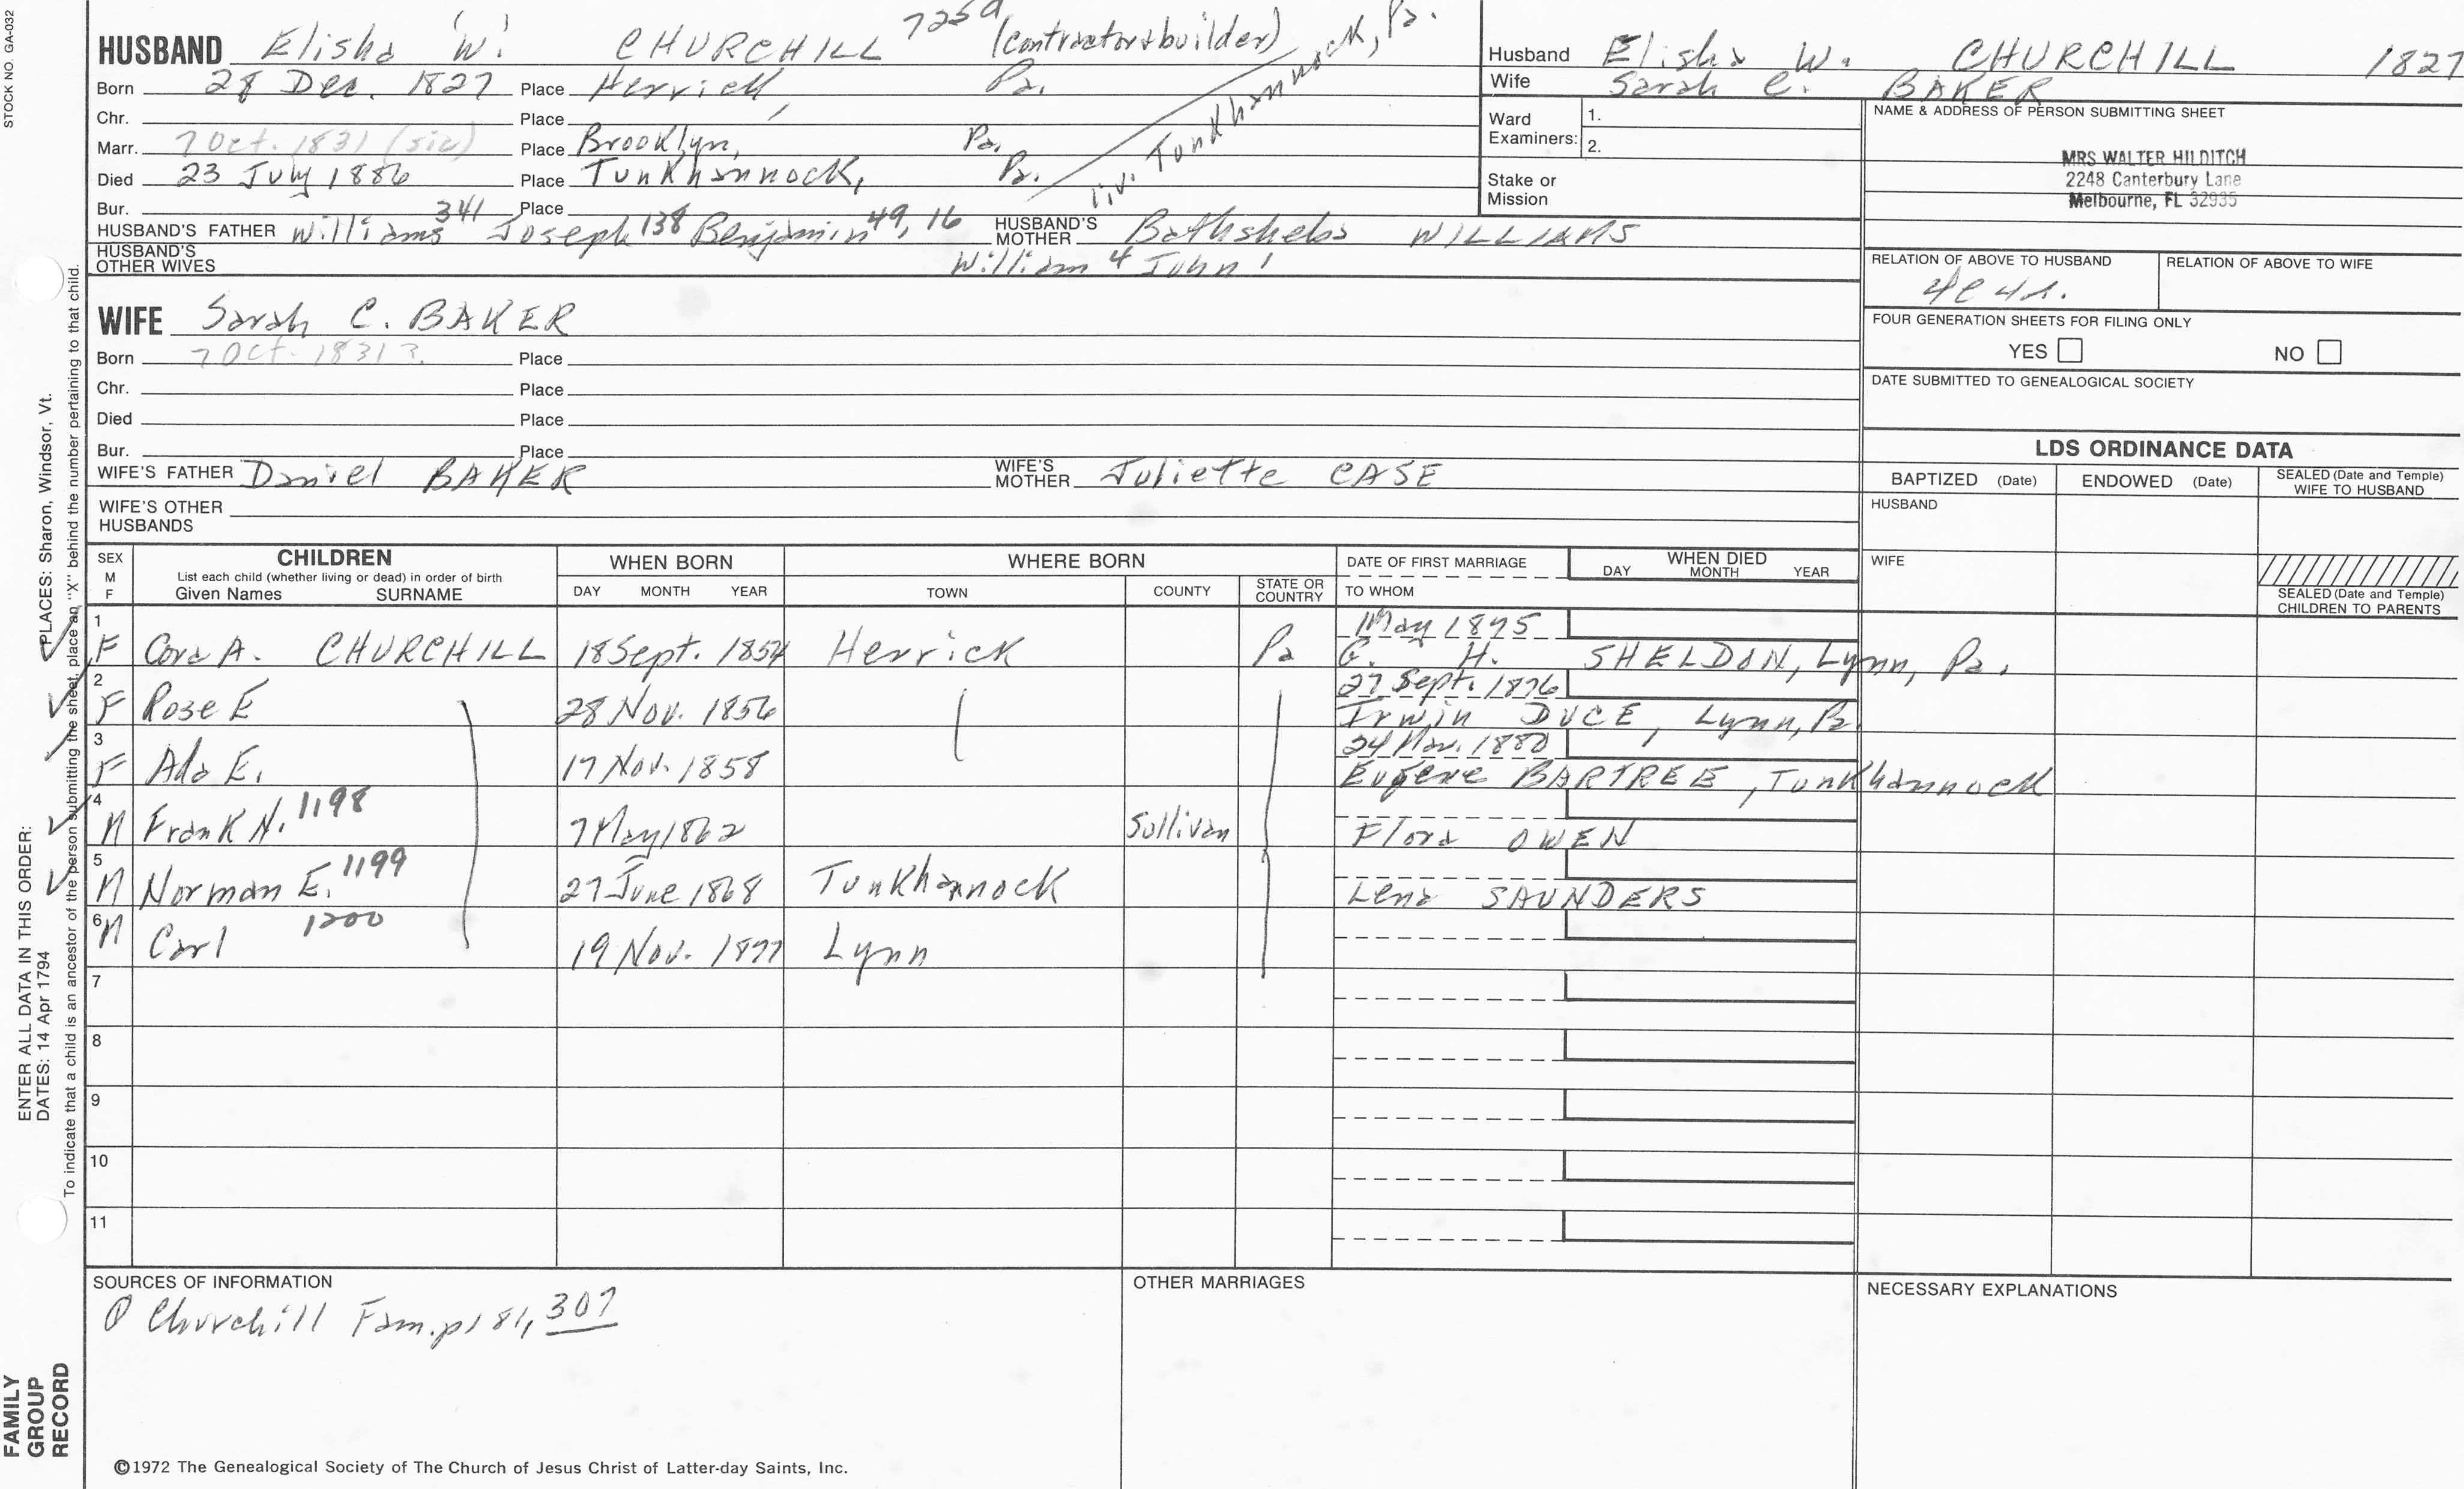 STOCK NO. GA-032
HUSBAND Elisha W. CHURCHILL 725a (contractor & builder)
Born 28 Dec. 1827 Place Herrick, Pa.
Chr. Place
Marr. 7 Oct. 1831 (sic) Place Brooklyn, Pa.
Died 23 July 1886 Place Tunkhannock, Pa.
liv. Tunkhannock, Pa.
Bur. Place
HUSBAND'S FATHER Williams 341 Joseph 138 Benjamin 49, 16 HUSBAND'S MOTHER Bathsheba WILLIAMS
HUSBAND'S OTHER WIVES William 4 John 1
WIFE Sarah C. BAKER
Born 7 Oct. 1831? Place
Chr. Place
Died Place
Bur. Place
WIFE'S FATHER Daniel BAKER WIFE'S MOTHER Juliette CASE
WIFE'S OTHER HUSBANDS
Husband Elisha W. CHURCHILL 1827
Wife Sarah C. BAKER
Ward Examiners: 1.
2.
Stake or Mission
NAME & ADDRESS OF PERSON SUBMITTING SHEET
MRS WALTER HILDITCH
2248 Canterbury Lane
Melbourne, FL 32935
RELATION OF ABOVE TO HUSBAND RELATION OF ABOVE TO WIFE
4c4r.
FOUR GENERATION SHEETS FOR FILING ONLY
YES NO
DATE SUBMITTED TO GENEALOGICAL SOCIETY
LDS ORDINANCE DATA
BAPTIZED (Date) ENDOWED (Date) SEALED (Date and Temple) WIFE TO HUSBAND
HUSBAND
WIFE
SEALED (Date and Temple) CHILDREN TO PARENTS
SEX M F
CHILDREN
List each child (whether living or dead) in order of birth
Given Names SURNAME
WHEN BORN
DAY MONTH YEAR
WHERE BORN
TOWN COUNTY STATE OR COUNTRY
DATE OF FIRST MARRIAGE
TO WHOM
WHEN DIED
DAY MONTH YEAR
1 F Cora A. CHURCHILL 18 Sept. 1854 Herrick Pa May 1875
G. H. SHELDON, Lynn, Pa.
2 F Rose E 28 Nov. 1856 27 Sept. 1876
Irwin DUCE, Lynn, Pa.
3 F Ada E. 17 Nov. 1858 24 Mar. 1880
Eugene BARTREE, Tunkhannock
4 M Frank N. 1198 7 May 1862 Sullivan
Flora OWEN
5 M Norman E. 1199 27 June 1868 Tunkhannock
Lena SAUNDERS
6 M Carl 1200 19 Nov. 1877 Lynn
7
8
9
10
11
SOURCES OF INFORMATION
Churchill Fam. p 181, 307
OTHER MARRIAGES
NECESSARY EXPLANATIONS
©1972 The Genealogical Society of The Church of Jesus Christ of Latter-day Saints, Inc.
FAMILY GROUP RECORD
ENTER ALL DATA IN THIS ORDER:
DATES: 14 Apr 1794 PLACES: Sharon, Windsor, Vt.
To indicate that a child is an ancestor of the person submitting the sheet, place an "X" behind the number pertaining to that child.